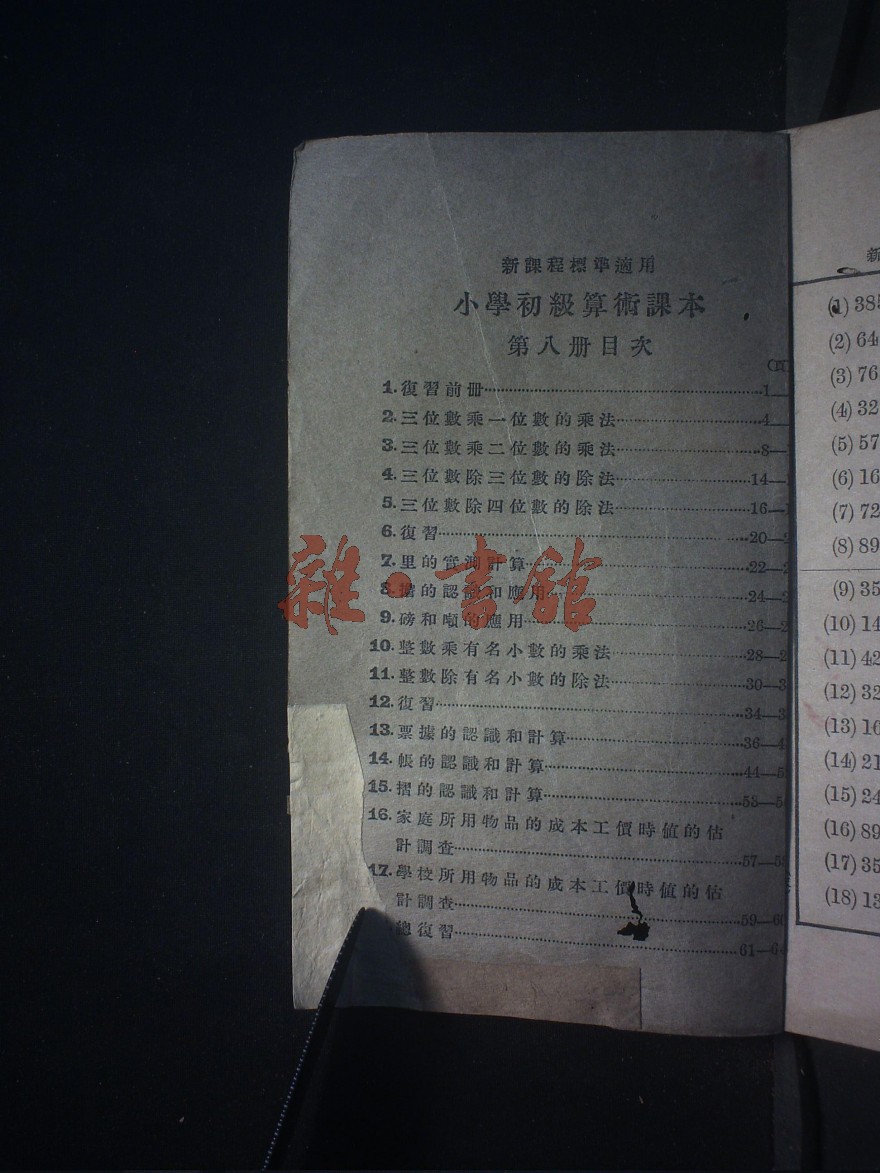 新課程標準適用
小學初級算術課本
第八册目次
1.復習前册……1—
2.三位數乘一位數的乘法……4—
3.三位數乘二位數的乘法……8—
4.三位數除三位數的除法……14—
5.三位數除四位數的除法……16—
6.復習……20—
7.里的實測計算……22—
8.的認識和應用……24—
9.磅和噸的應用……26—
10.整數乘有名小數的乘法……28—
11.整數除有名小數的除法……30—
12.復習……34—
13.票據的認識和計算……36—
14.帳的認識和計算……44—
15.摺的認識和計算……53—
16.家庭所用物品的成本工價時値的估
計調查……57—
17.學校所用物品的成本工價時値的估
計調查……59—60
總復習……61—
雜·書館
新
(1) 385
(2) 64
(3) 76
(4) 32
(5) 57
(6) 16
(7) 72
(8) 89
(9) 35
(10) 14
(11) 42
(12) 32
(13) 16
(14) 21
(15) 24
(16) 89
(17) 35
(18) 13